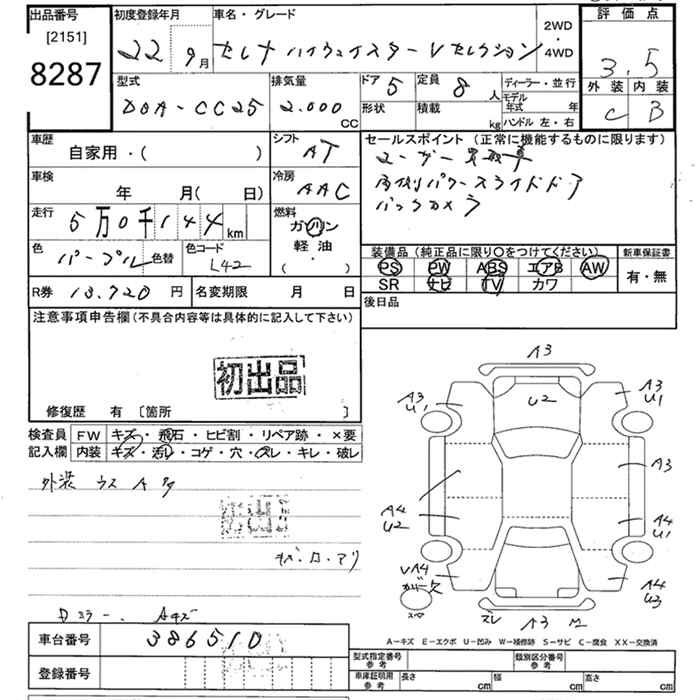 出品番号
[2151]
8287
初度登録年月
22 9月
車名・グレード
セレナ ハイウェイスターVセレクション
2WD
・
4WD
評価点
3.5
外装 内装
C B
型式
DBA-CC25
排気量
2.000
CC
ドア 5
定員 8人
形状
積載 kg
ディーラー・並行
モデル年式 年
ハンドル 左・右
車歴
自家用・( )
シフト
AT
車検
年 月( 日)
冷房
AAC
走行
5万0千144km
燃料
ガソリン
軽油・
( )
色
パープル
色替
色コード
L42
R券 13.720円
名変期限 月 日
セールスポイント (正常に機能するものに限ります)
ユーザー買取車
両側パワースライドドア
バックカメラ
装備品 (純正品に限り○をつけてください)
PS PW ABS エアB AW
SR ナビ TV カワ
新車保証書
有・無
後日品
注意事項申告欄 (不具合内容等は具体的に記入して下さい)
初出品
修復歴 有 〔箇所 〕
検査員
記入欄
FW キズ・飛石・ヒビ割・リペア跡・×要
内装 キズ・汚レ・コゲ・穴・スレ・キレ・破レ
外装 ウス A
初出品
Dミラー Aキズ
車台番号
386510
登録番号
A3
A3
U1
U2
A3
U1
A3
A4
U2
A4
U1
A4
U3
スペ
ズレ
A3
A-キズ E-エクボ U-凹み W-補修跡 S-サビ C-腐食 XX-交換済
型式指定番号
参考
類別区分番号
参考
車庫証明用
参考
長さ cm
幅 cm
高さ cm